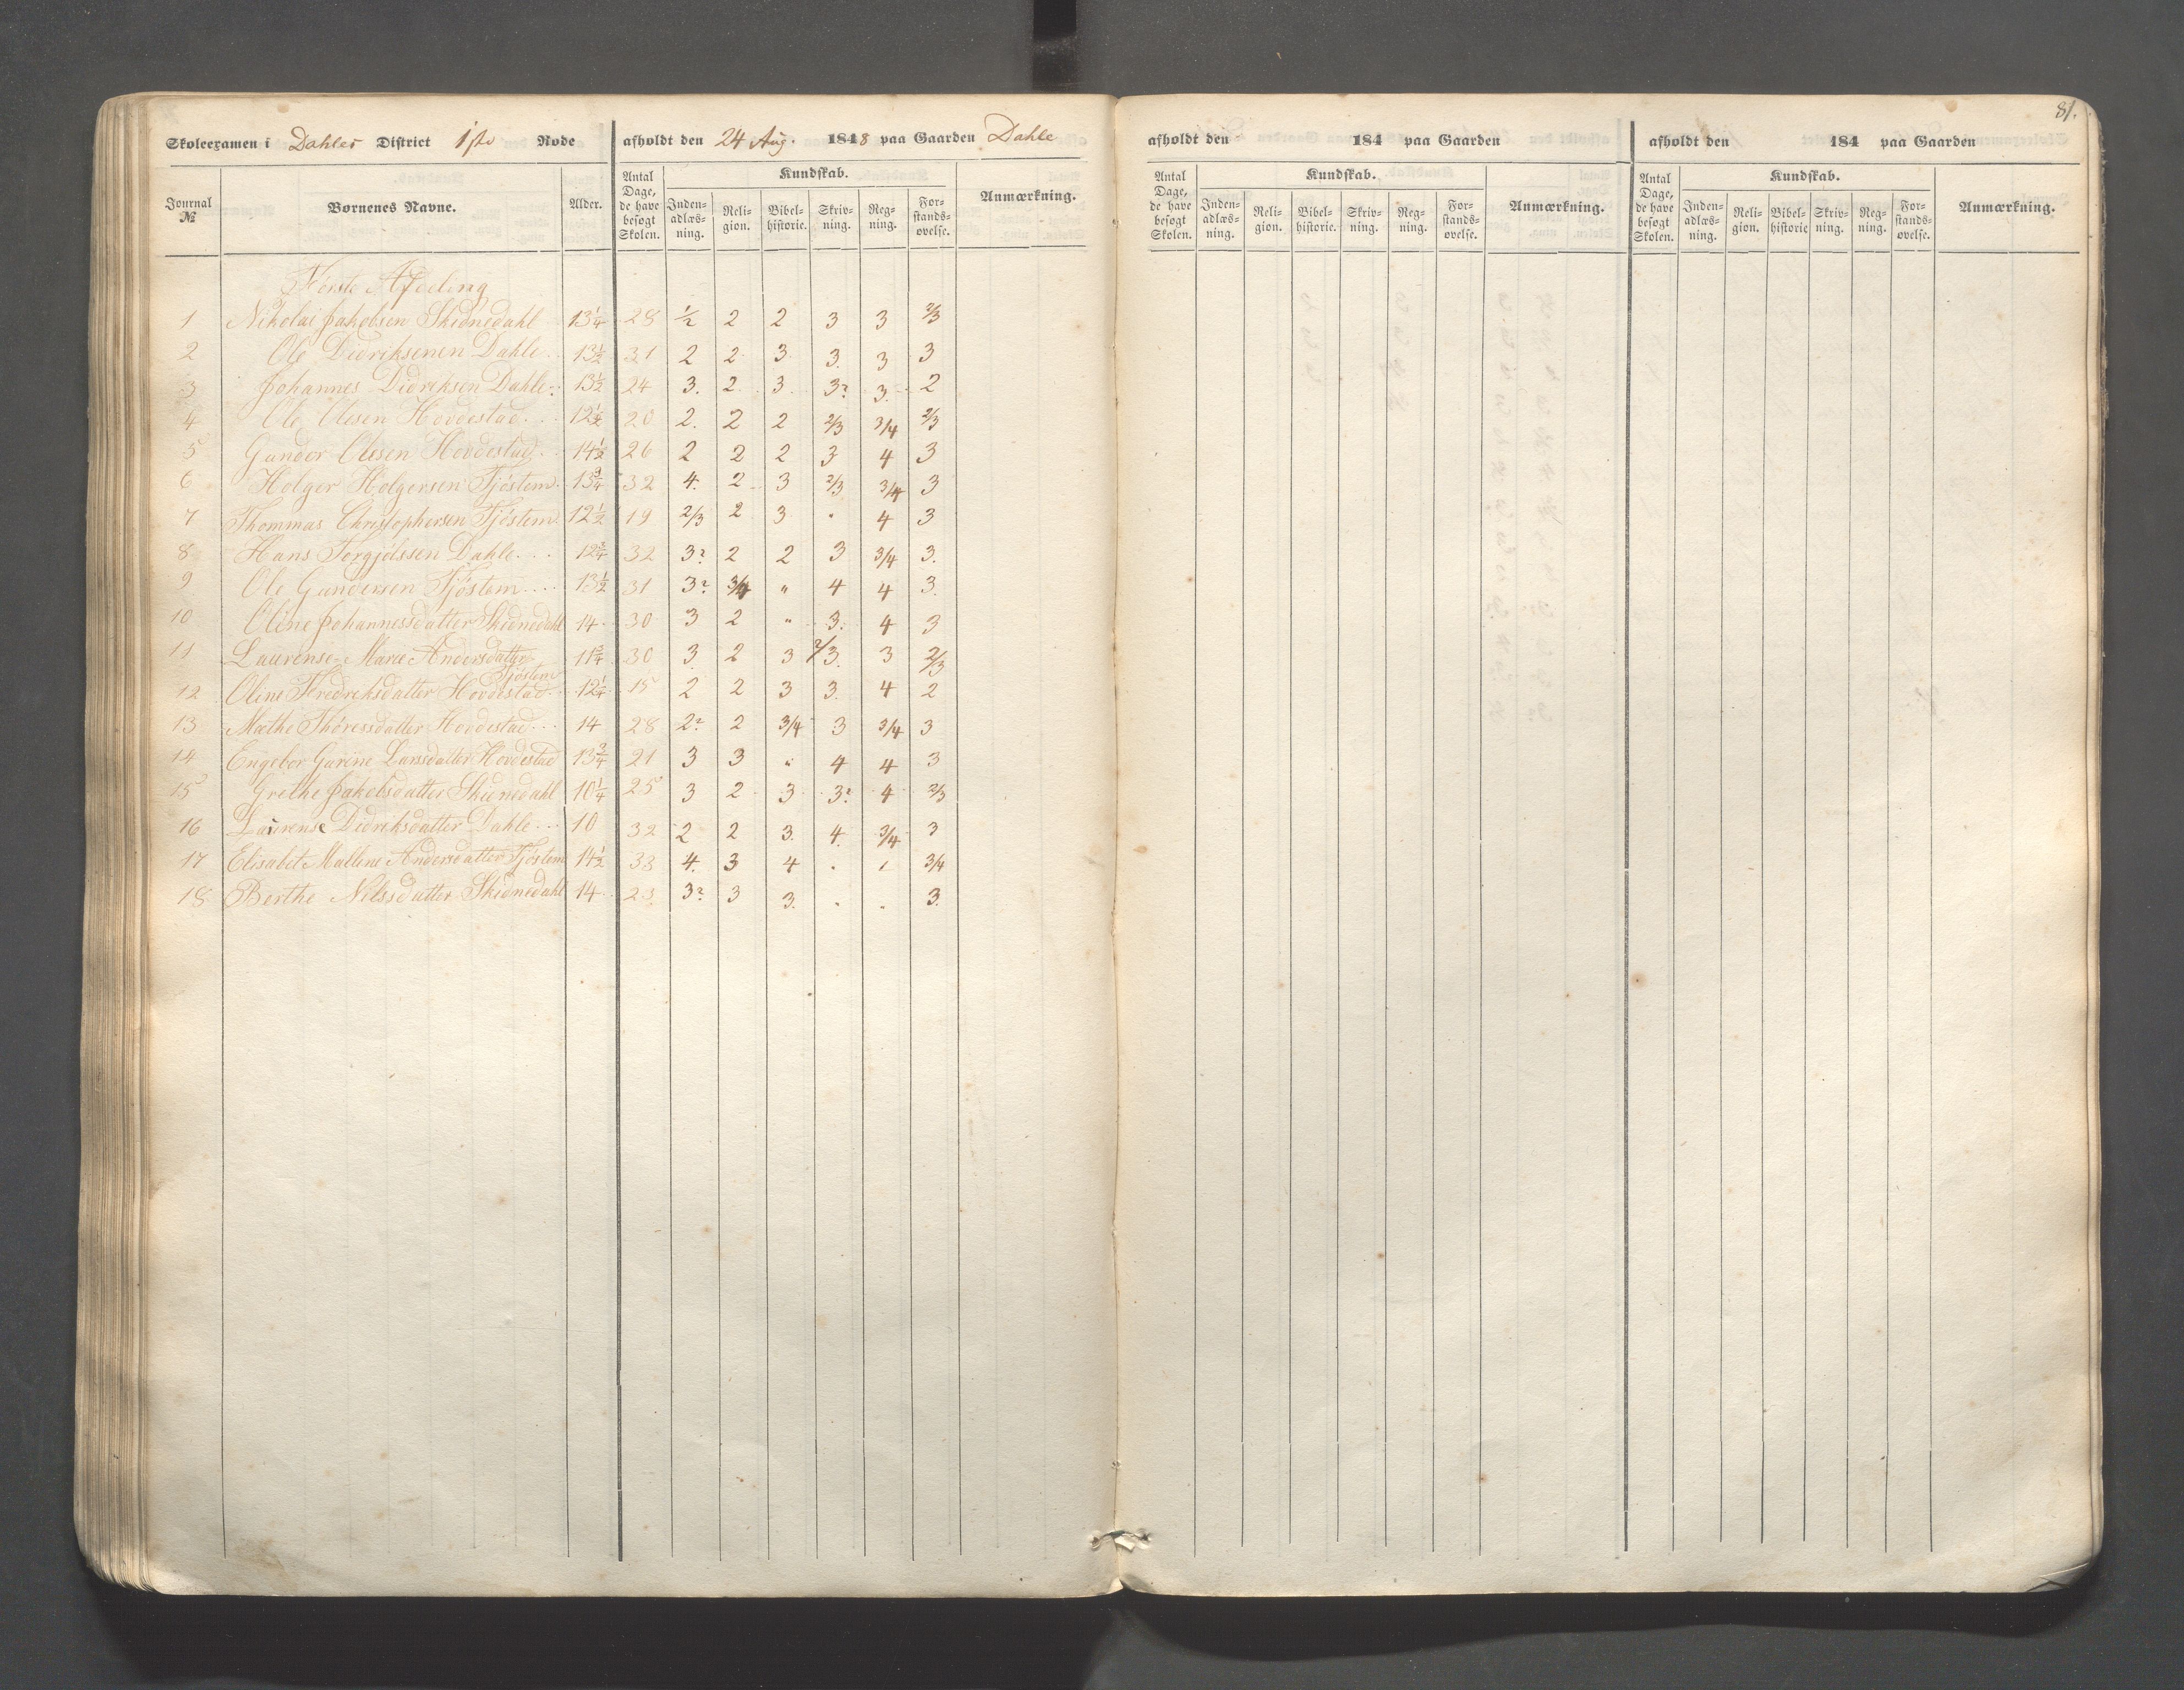 Skoleexamen i Dahles District 1ste Rode afholdt den 24 Aug. 1848 paa Gaarden Dahle
Journal № Børnenes Navne. Alder. Antal Dage, de have besøgt Skolen. Kundskab. Indenadlæsning. Religion. Bibelhistorie. Skrivning. Regning. Forstandsøvelse. Anmærkning.
Første Afdeling
1 Nikolai Jakobsen Skednedahl 13 1/4 28 1/2 2 2 3 3 2/3
2 Ole Didriksenen Dahle 13 1/2 31 2 2 3 3. 3 3
3 Johannes Didriksen Dahle 13 1/2 24 3. 2 3 3? 3. 2
4 Ole Olesen Hovdestad 12 1/2 20 2. 2 2 2/3 3/4 2/3
5 Gunder Olesen Hovdestad 14 1/2 26 2 2 2 3 4 3
6 Holger Holgersen Tjöstem 13 32 4. 2 3 2/3 3/4 3
7 Thommas Christophersen Tjöstem 12 1/2 19 2/3 2 3 " 4 3
8 Hans Torgjölssen Dahle 12 3/4 32 3? 2 2 3 3/4 3.
9 Ole Gundersen Tjöstem 13 1/2 31 3? 3/4 " 4 4 3.
10 Oline Johannesdatter Skednedahl 14 30 3 2 " 3. 4 3
11 Laurense Marie Andersdatter 11 3/4 30 3 2 3 2/3. 3 2/3
Tjöstem
12 Oline Fredriksdatter Hovdestad 12 1/4 15 2 2 3 3. 4 2
13 Mathe Thoresdatter Hovdestad 14 28 2? 2 3/4 3 3/4 3
14 Engebor Gurine Larsdatter Hovdestad 13 3/4 21 3 3 " 4 4 3
15 Grethe Jakobsdatter Skednedahl 10 1/4 25 3 2 3 3? 4 2/3
16 Laurense Didriksdatter Dahle 10 32 2 2 3. 4. 3/4 3
17 Elisabet Mallene Andersdatter Tjöstem 14 1/2 33 4. 3 4 " " 3/4
18 Berthe Nilssdatter Skednedahl 14 23 3? 3 3. " " 3.
81.
afholdt den 184 paa Gaarden
Antal Dage, de have besøgt Skolen. Kundskab. Indenadlæsning. Religion. Bibelhistorie. Skrivning. Regning. Forstandsøvelse. Anmærkning.
afholdt den 184 paa Gaarden
Antal Dage, de have besøgt Skolen. Kundskab. Indenadlæsning. Religion. Bibelhistorie Skrivning. Regning. Forstandsøvelse. Anmærkning.